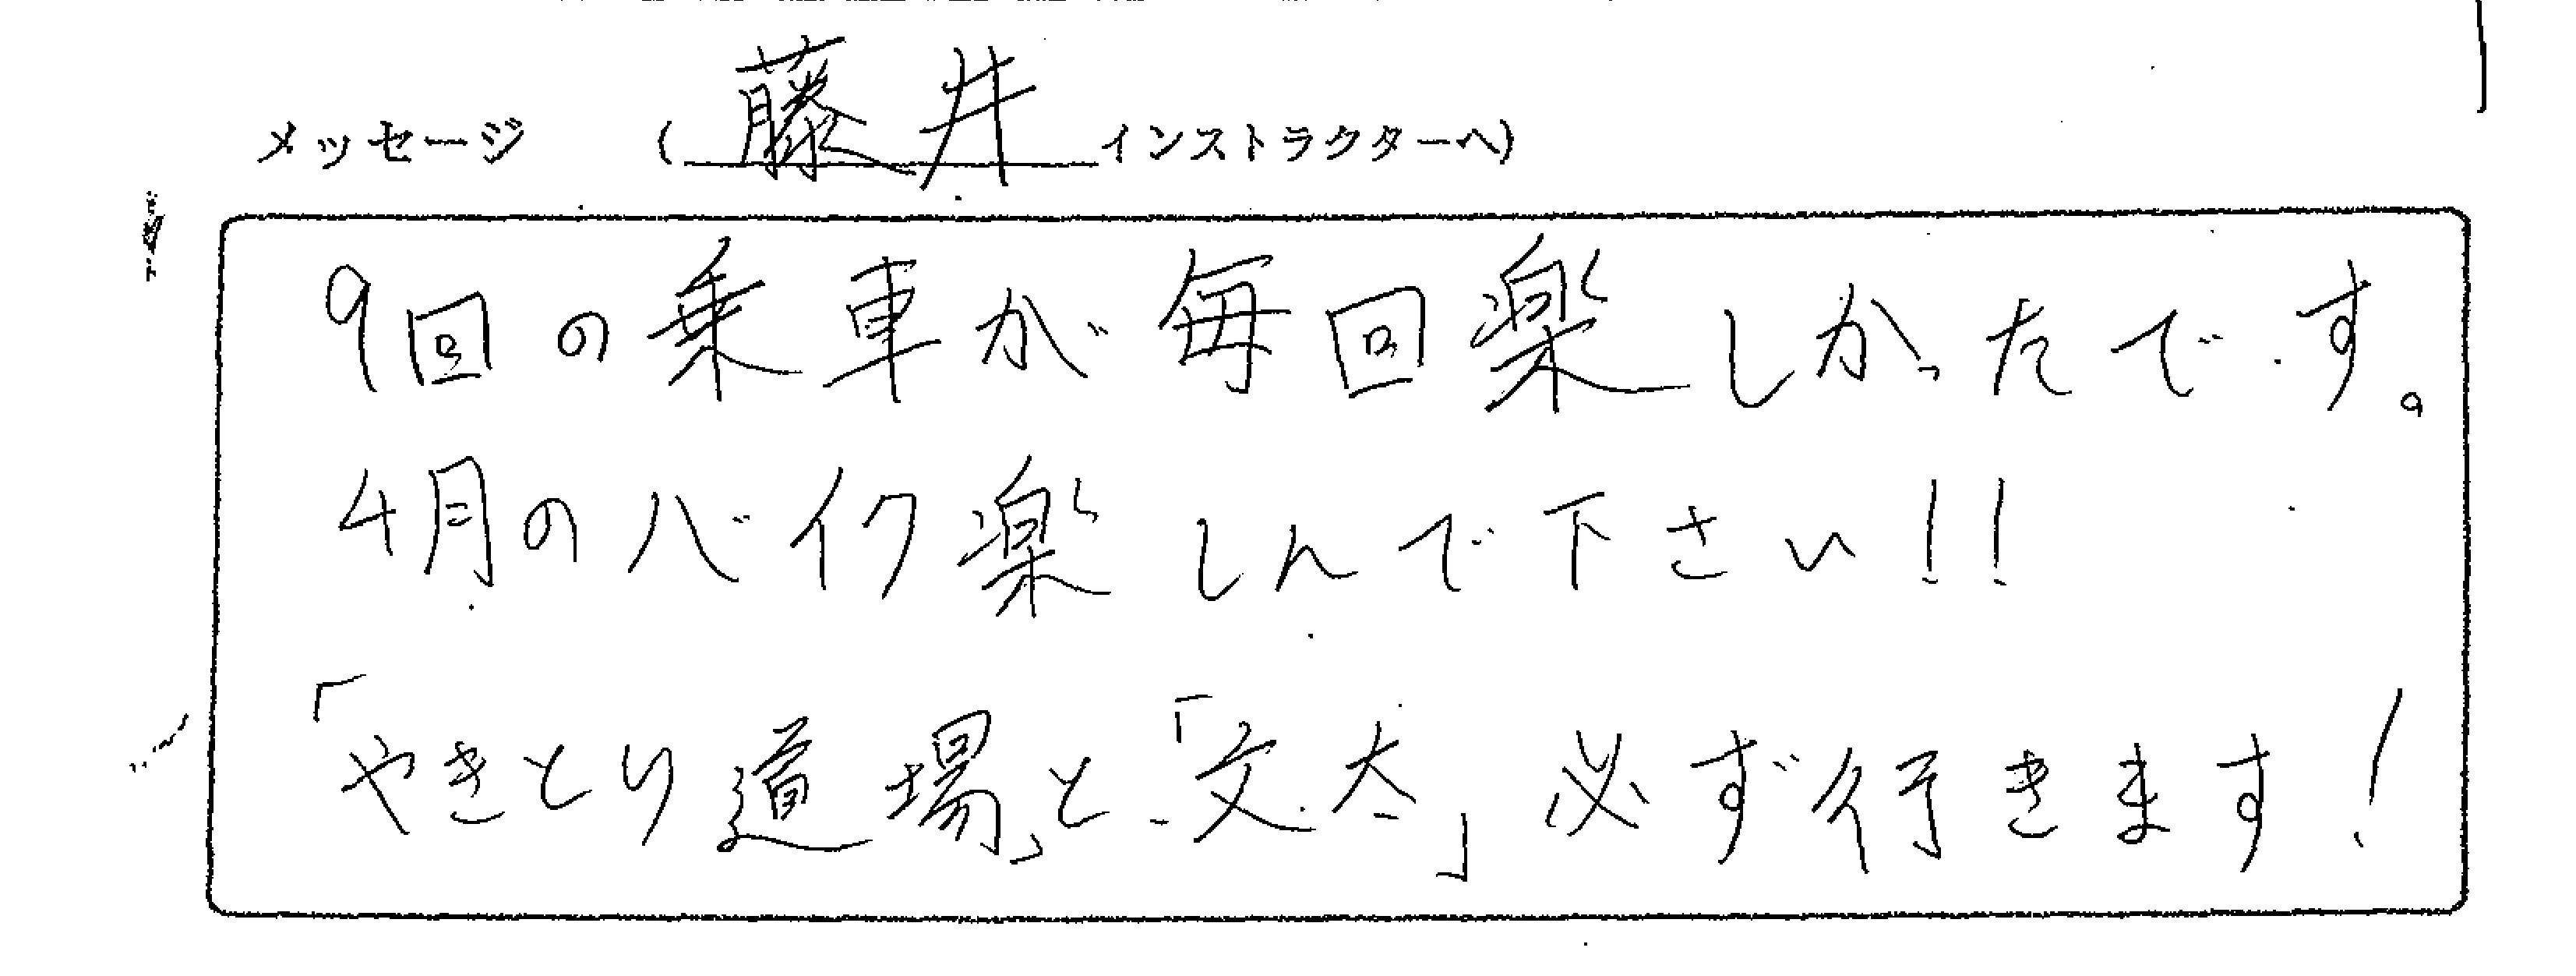 メッセージ (藤井インストラクターへ)
9回の乗車が毎回楽しかったです。
4月のバイク楽しんで下さい!!
「やきとり道場」と「文太」必ず行きます!